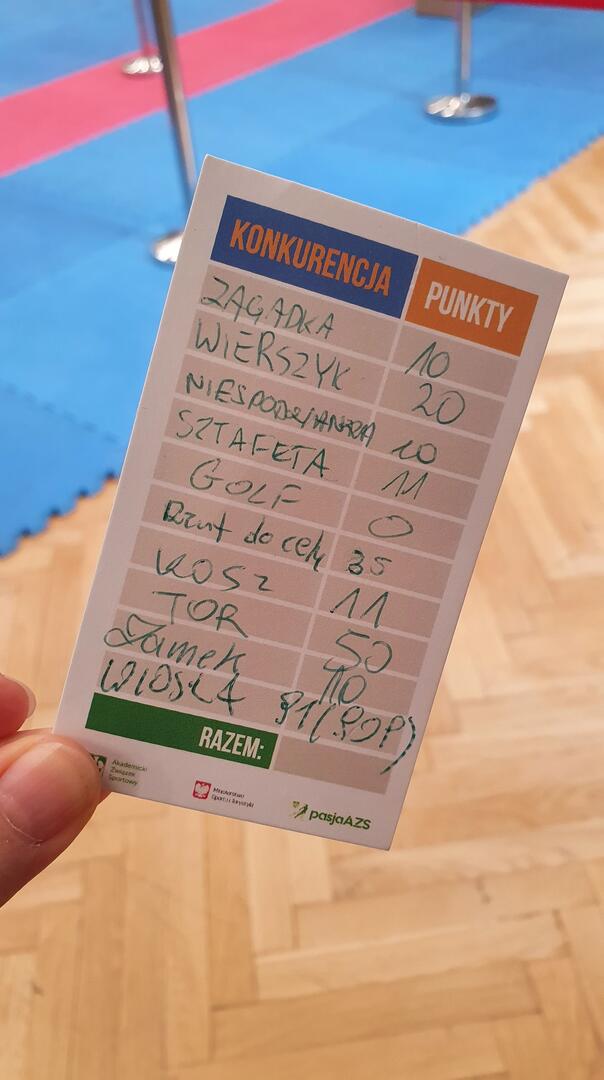 KONKURENCJA PUNKTY
ZAGADKA 10
WIERSZYK 20
NIESPODZIANKA 10
SZTAFETA 11
GOLF 0
Rzut do celu 35
KOSZ 11
TOR 50
Zamek 10
WIOSŁA 91(90P)
RAZEM:
Akademicki
Związek
Sportowy
Ministerstwo
Sportu i Turystyki
pasjaAZS